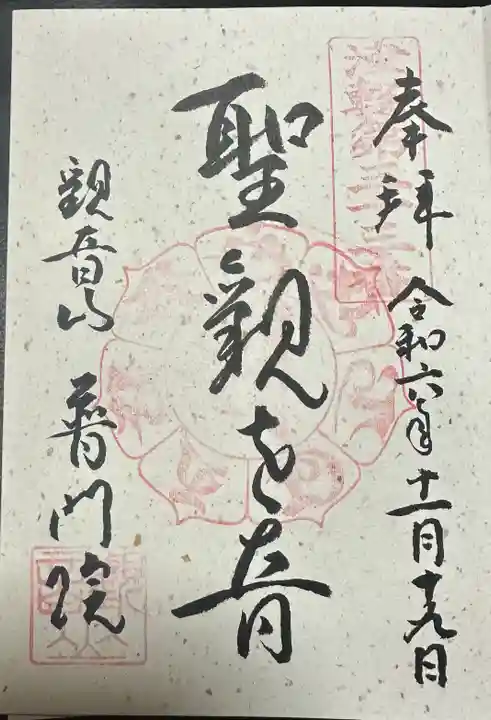 奉拝 令和六年十一月十九日
聖觀世音
觀音山 普門院